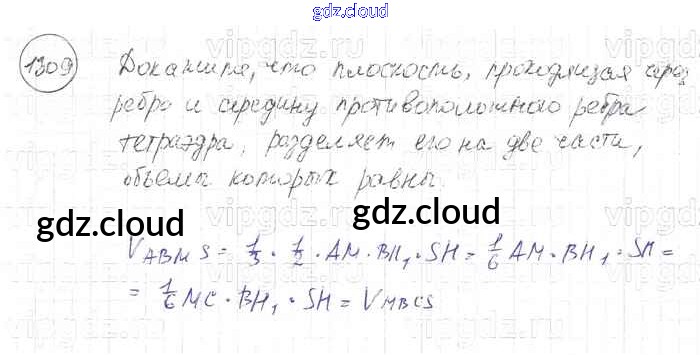 gdz.cloud
1309 Докажите, что плоскость, проходящая через
ребро и середину противоположного ребра
тетраэдра, разделяет его на две части,
объемы которых равны.
gdz.cloud gdz.cloud
V_ABMS = 1/3 · 1/2 · AM · BH₁ · SH = 1/6 AM · BH₁ · SH =
= 1/6 MC · BH₁ · SH = V_MBCS